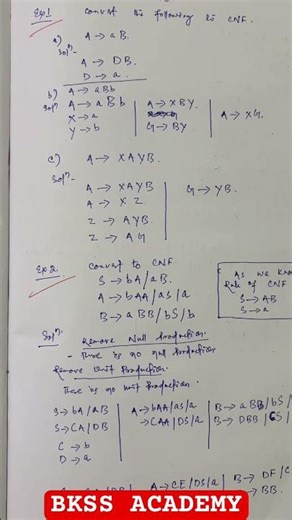 Exp 1 Convert the following to CNF.
a) A → aB.
Solⁿ. A → DB.
D → a.
b) A → aBb
Solⁿ A → aBb | A → XBY. | A → XG.
X → a
Y → b | G → BY
c) A → XAYB.
Solⁿ. A → XAYB | G → YB.
A → XZ.
Z → AYB.
Z → AG
Ex 2. Convert to CNF
S → bA/aB.
A → bAA/aS/a
B → aBB/bS/b
As we know
Rule of CNF
S → AB
S → a
Solⁿ. Remove Null Production.
- There is no null Production
Remove Unit Production.
There is no Unit Production.
S → bA/aB | A → bAA/aS/a | B → aBB/bS/
S → CA/DB | → CAA/DS/a | B → DBB/CS/
C → b
D → a
A → CE/DS/a | B → DF/C
BB.
BKSS ACADEMY